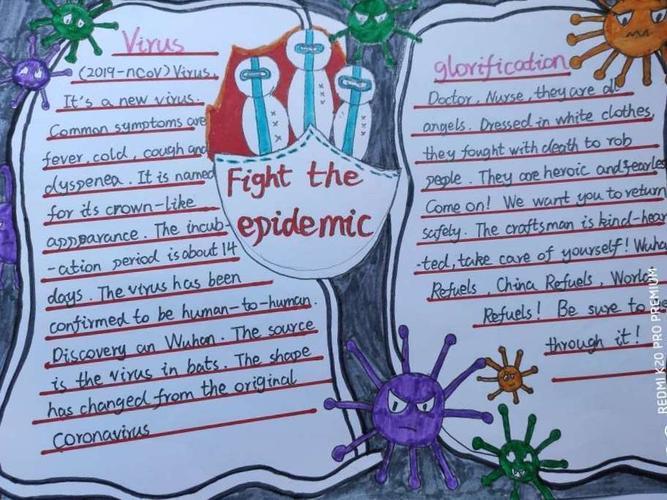 Virus
(2019-nCoV) Virus.
It's a new virus.
Common symptoms are
fever, cold, cough and
dyspenea. It is named
for its crown-like
appparance. The incub-
-ation period is about 14
days. The virus has been
confirmed to be human-to-human.
Discovery an Wuhan. The source
is the virus in bats. The shape
has changed from the original
Coronavirus
Fight the
epidemic
glorification
Doctor, Nurse, they are all
angels. Dressed in white clothes,
they fought with death to rob
people. They are heroic and fearless
Come on! We want you to return
safety. The craftsman is kind-hear
-ted, take care of yourself! Wuha
Refuels, China Refuels, World
Refuels! Be sure to
through it!
REDMI K20 PRO PREMIUM